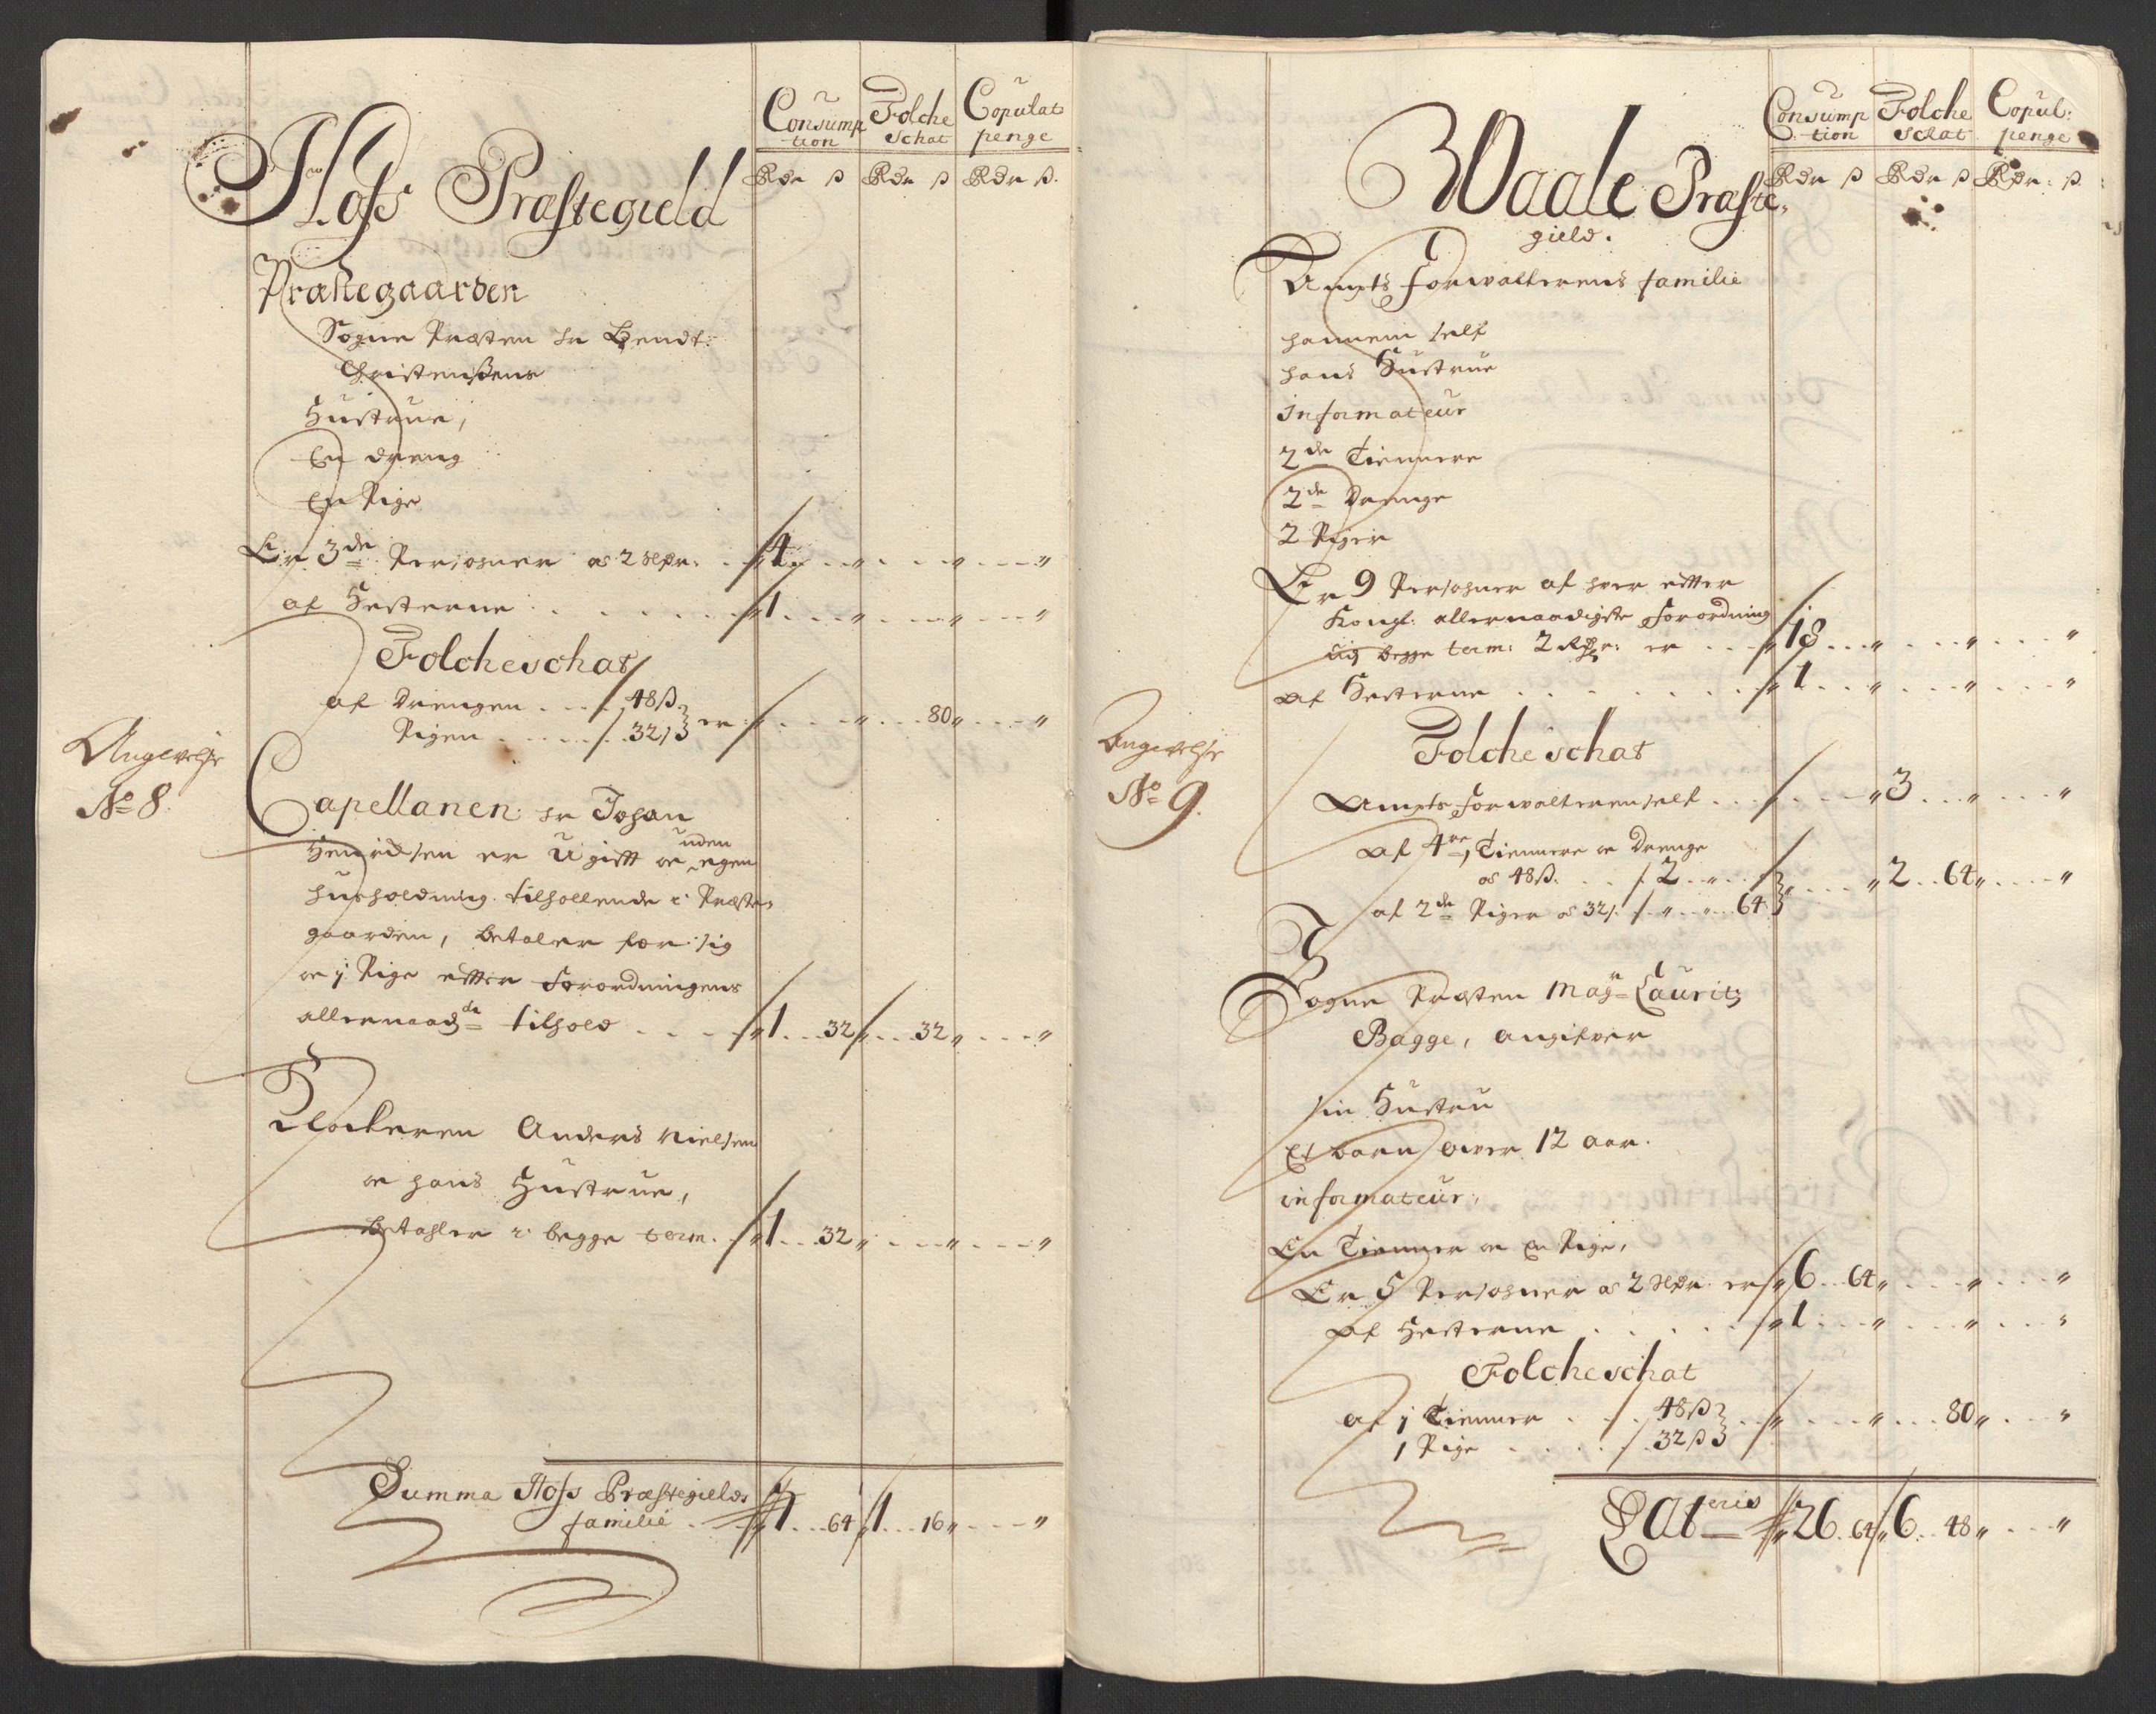 Consump
tion
Folche
schat
Copulat
penge
Rdr ß Rdr ß Rdr ß.
Hofs Præstegield
Præstegaarden
Sogne Præsten Hr Bendt:
Christenßens
Hustrue,
En dreng
En Pige
Er 3de Persohner a 2 Rdr: 4 " " "
af Hesterne 1 " " "
Folcheschat
af Drengen 48 ß
Pigen 32 ß er " 80 "
Angivelse
No 8.
Capellanen Hr Johan
Henrichsen er Ugift og uden egen
huusholdning. tilhollende i Præste,
gaarden, betaler for sig
og 1 Pige efter Forordningens
allernaadde tilhold 1 32 32 " "
Klockeren Anders Nielsen
og hans Hustrue,
betahler i begge term. 1 32 " " "
Summa Hofs Præstegields
familie 64 1 16 " "
Consump
tion
Folche
schat
Copul:
penge
Rdr ß Rdr ß Rdr: ß
Waale Præste,
gield.
Ampts Forwalterens familie
hannem self
hans Hustrue
informateur
2de Tiennere
2de Drenge
2 Piger
Er 9 Persohner af hver efter
Kongl: allernaadigste Forordning
udj begge term: 2 Rdr: er 18 " " "
af Hesterne 1 " " "
Angivelse
No 9.
Folcheschat
Ampts Forwalteren self " 3 " "
af 4re Tiennere og Drenge
a 48 ß. 2 "
af 2de Piger a 32 ß. " 64 " 2 64 " "
Sogne Præsten Magr Lauritz
Bagge, angifver
sin Hustru
Et barn over 12 aar.
informateur,
En Tienner og en Pige,
Er 5 Persohner a 2 Rdr er 6 64 " " "
af Hesterne 1 " " "
Folcheschat
af 1 Tienner 48 ß
1 Pige 32 ß " 80 " "
Lateris 26 64 6 48 " "